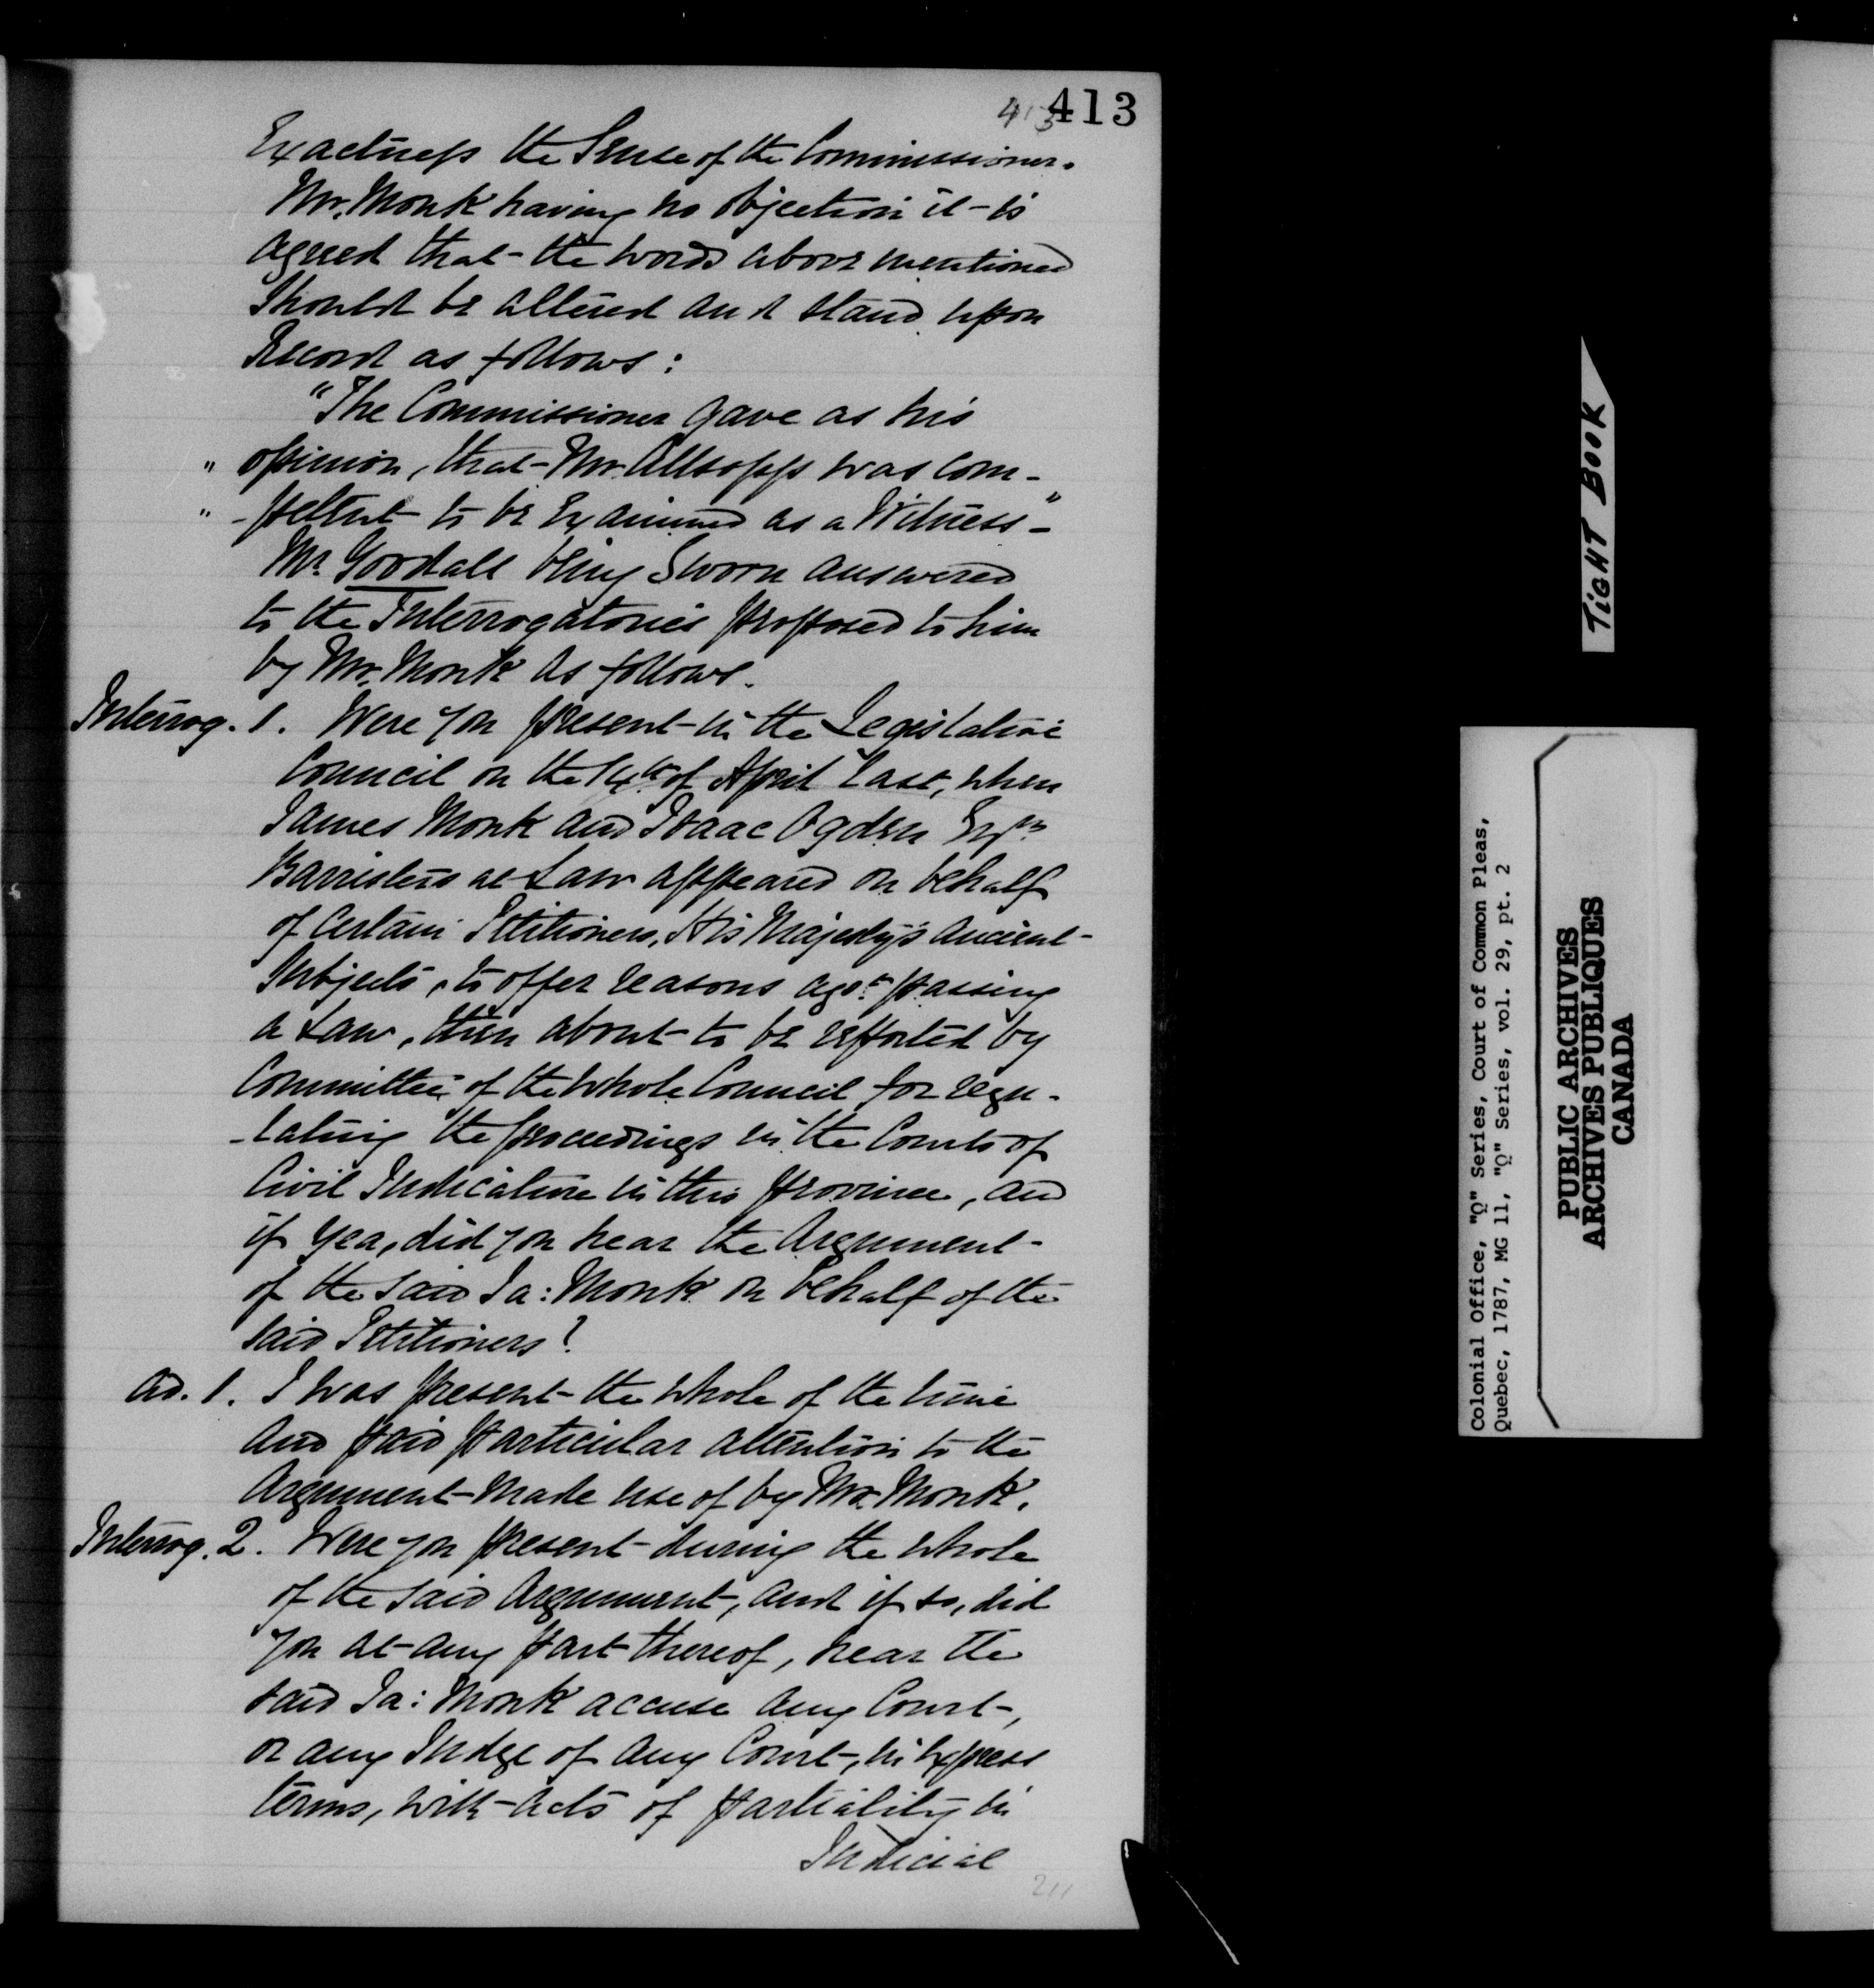 413
413
Exactness the Sense of the Commissioner.
Mr. Monk having no objection it is
agreed that the words above mentioned
Should be altered and stand upon
Record as follows:
"The Commissioner gave as his
" opinion, that Mr. Allsopp was com-
" -petent to be Examined as a Witness"-
Mr. Goodall being Sworn answered
to the Interrogatories proposed to him
by Mr. Monk as follows.
Interrog. 1. Were you present in the Legislative
Council on the 14th of April last, when
James Monk and Isaac Ogden Esqrs
Barristers at Law appeared on behalf
of Certain Petitioners, His Majesty's ancient
Subjects, to offer reasons agst passing
a Law, then about to be reported by
Committee of the Whole Council for regu-
-lating the proceedings in the Courts of
Civil Judicature in this province, and
if Yea, did you hear the Argument
of the said Ja: Monk on behalf of the
said Petitioners?
Ad. 1. I was present the whole of the time
and paid particular attention to the
Argument made use of by Mr. Monk.
Interrog. 2. Were you present during the whole
of the said Argument, and if so, did
you at any part thereof, hear the
said Ja: Monk accuse any Court,
or any Judge of any Court, in Express
terms, with acts of partiality in
Judicial
211
TIGHT BOOK
Colonial Office, "Q" Series, Court of Common Pleas,
Quebec, 1787, MG 11, "Q" Series, vol. 29, pt. 2
PUBLIC ARCHIVES
ARCHIVES PUBLIQUES
CANADA